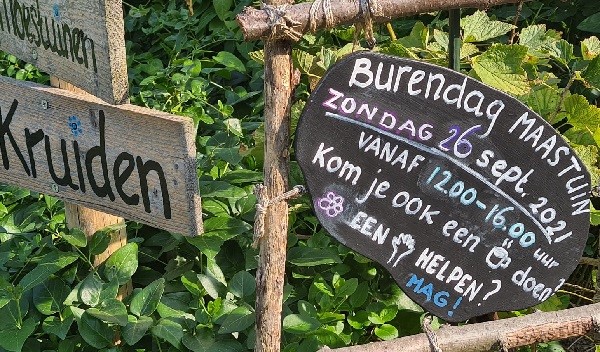 Moestuinen
Kruiden
Burendag MAASTUIN
ZONDAG 26 sept. 2021
VANAF 12.00-16.00 uur
Kom je ook een doen?
EEN HELPEN?
MAG!